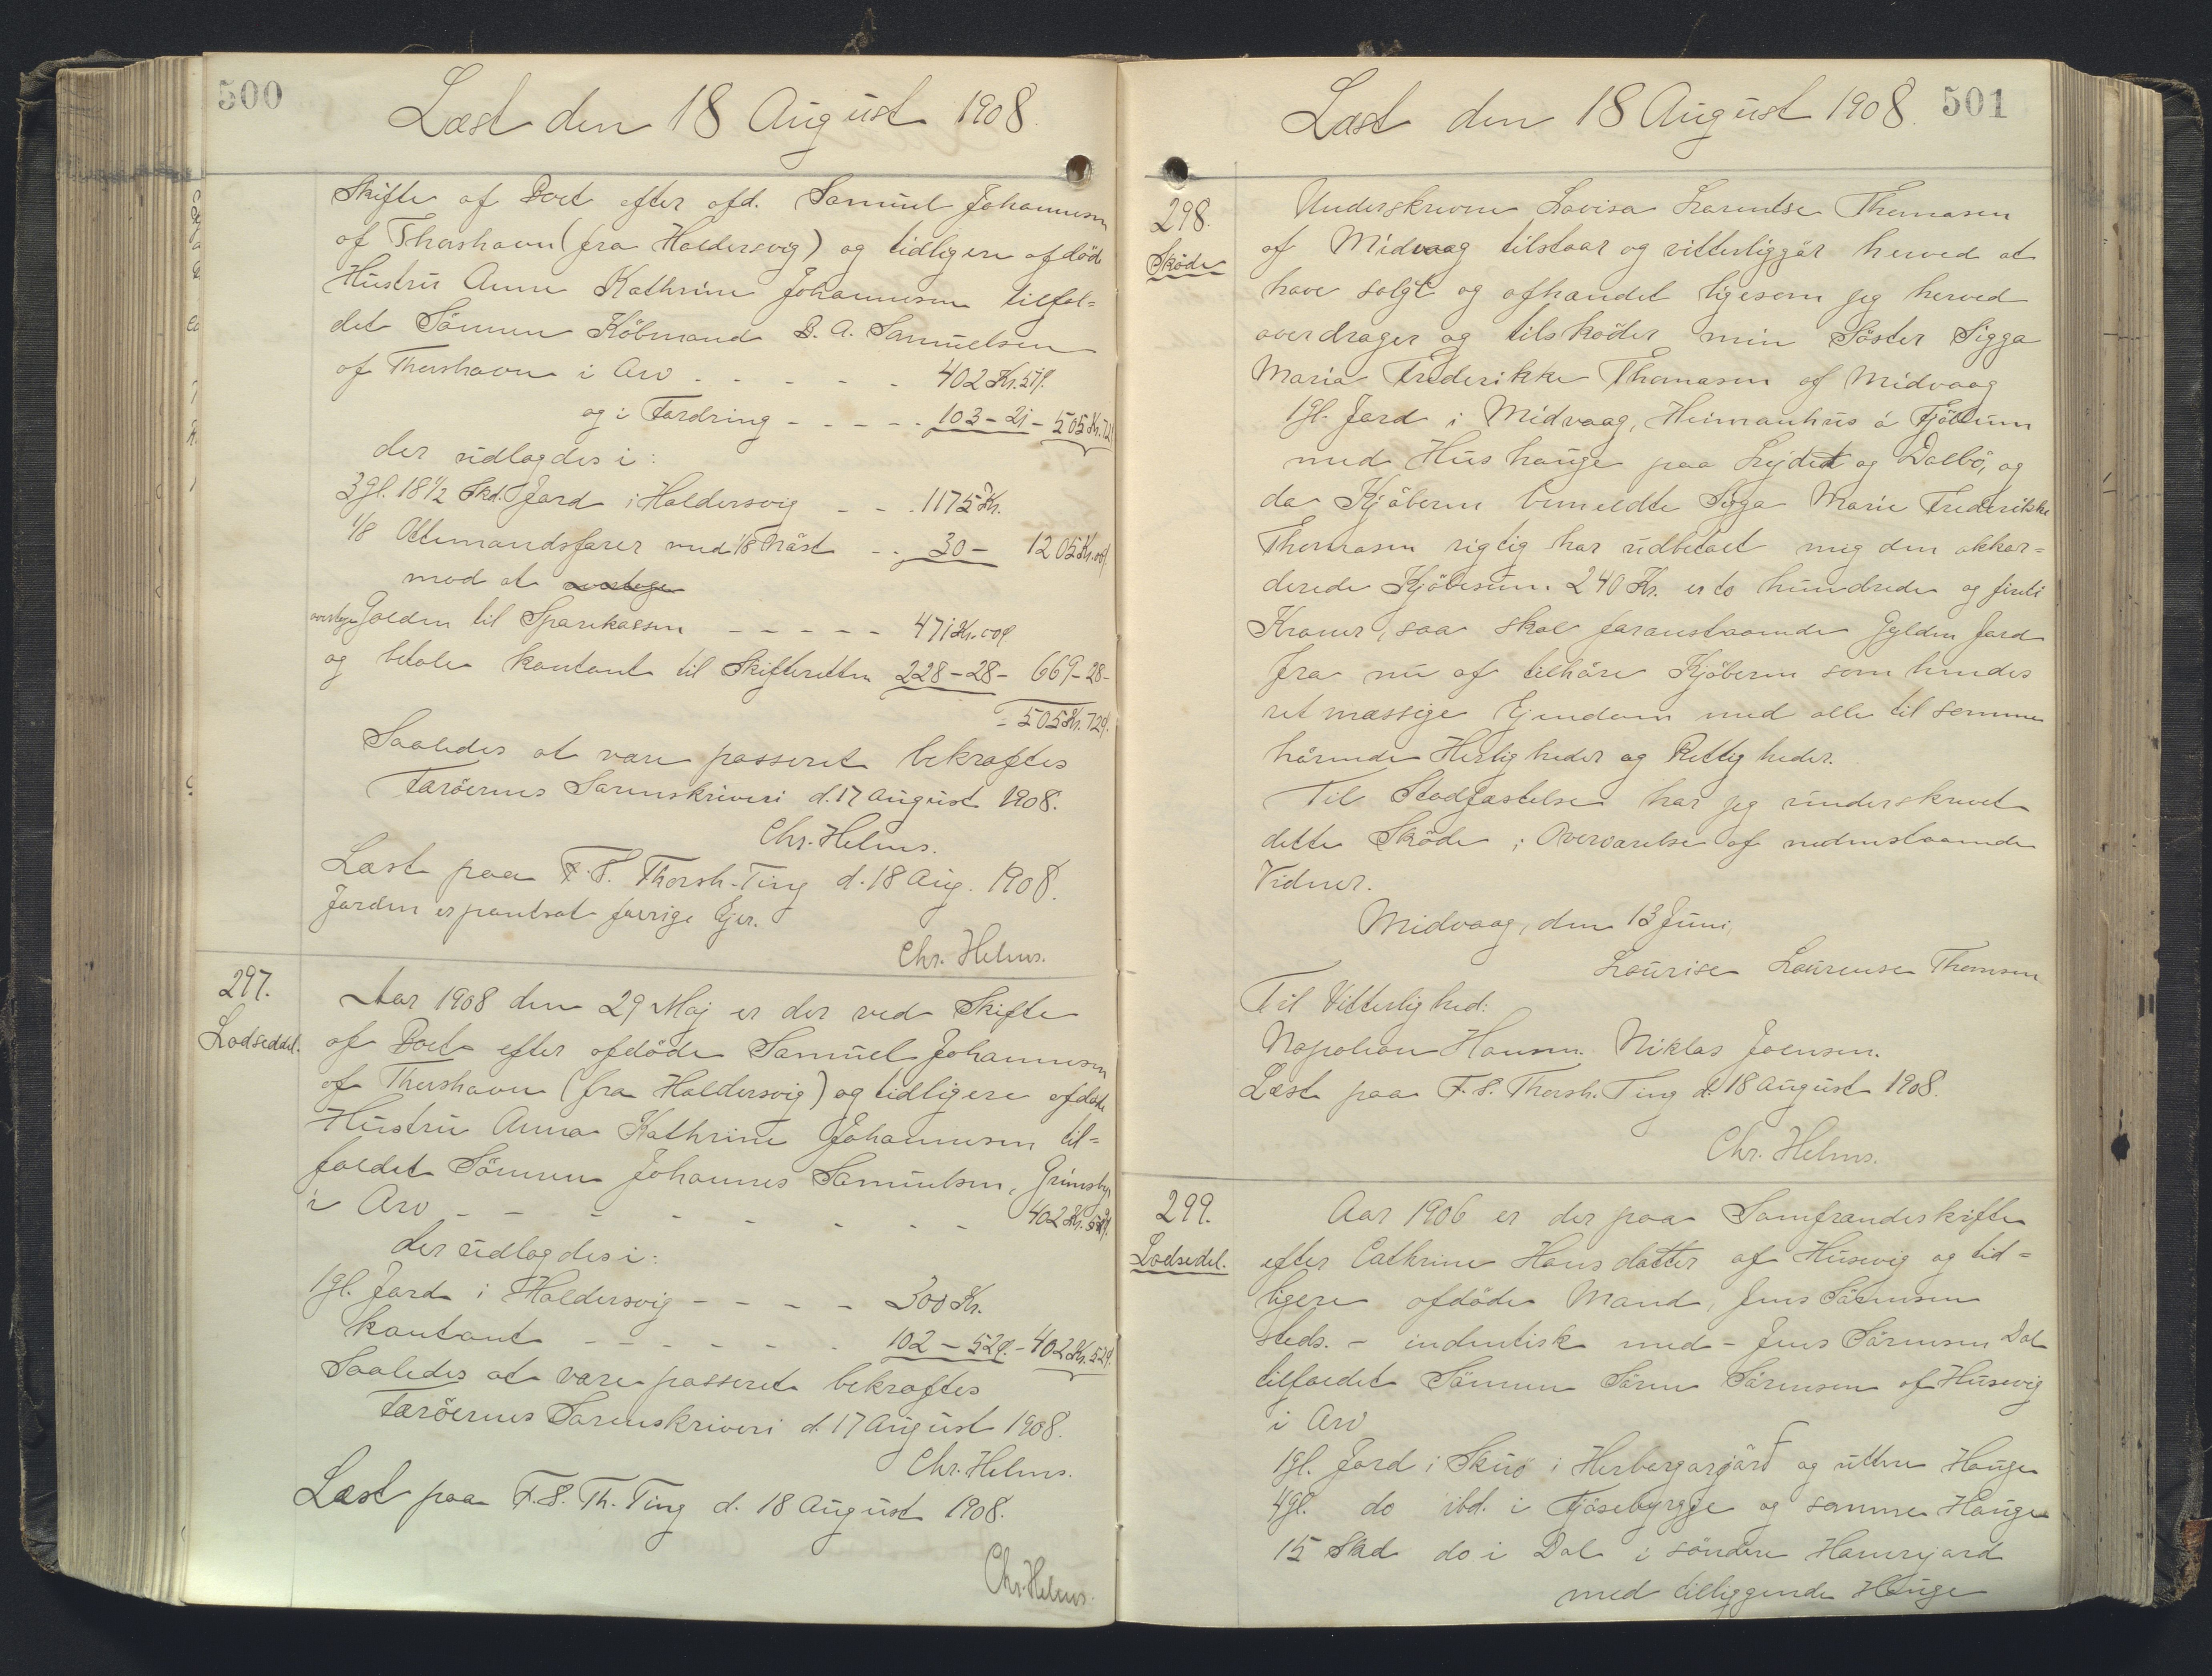 500
Læst den 18 August 1908.
Skifte af Boet efter afd. Samuel Johannesen
af Thorshavn (fra Haldersvig) og tidligere afdöde
Hustru Anne Kathrine Johannesen tilfal=
det Sönnen Köbmand S. A. Samuelsen
af Thorshavn i Arv - - - - - 402 Kr. 51 Ø.
og i Fordring - - - - - 103 - 21 - 505 Kr. 72
der udlagdes i:
3 gl. 18 1/2 Skd. Jord i Haldersvig - - - 1175 Kr.
1/8 Ottemandsfarer med 1/8 Nöst - - 30 - 1205 Kr. 00 Ø
mod at overtage
overtage Gælden til Sparekassen - - - - - 471 Kr. 00 Ø
og betale kontant til Skifteretten 228 - 28 - 669 - 28 -
= 505 Kr. 72 Ø.
Saaledes at være passeret bekræftes
Færöernes Sorenskriveri d. 17 August 1908.
Chr. Helms.
Læst paa F. S. Thorsh. Ting d. 18 Aug. 1908.
Jorden er pantsat forrige Ejer.
Chr. Helms.
297.
Lodseddel.
Aar 1908 den 29 Maj er der ved Skifte
af Boet efter afdöde Samuel Johannesen
af Thorshavn (fra Haldersvig) og tidligere afdöde
Hustru Anna Kathrine Johannesen til=
faldet Sönnen Johannes Samuelsen, Grimsby
i Arv - - - - - - - - 402 Kr. 52 Ø.
der udlagdes i:
1 gl. Jord i Haldersvig - - - - 300 Kr.
kontant - - - - - - 102 - 52 Ø. - 402 Kr. 52 Ø.
Saaledes at være passeret bekræftes
Færöernes Sorenskriveri d. 17 August 1908.
Chr. Helms.
Læst paa F. S. Th. Ting d. 18 August 1908.
Chr. Helms.
Læst den 18 August 1908. 501
298.
Sköde
Underskrevne Lovisa Laurentse Thomasen
af Midvaag tilstaar og vitterliggör herved at
have solgt og afhændet ligesom jeg herved
overdrager og tilsköder min Söster Sigga
Maria Frederikke Thomasen af Midvaag
1 gl. Jord i Midvaag, Heimanhus á Fjöllum
med Hus hauge paa Lejdet og Dalbö, og
da Kjöberen bemeldte Sigga Marie Frederikke
Thomasen rigtig har udbetalt mig den akkor=
derede Kjöbesum. 240 Kr. er to hundrede og firti
Kroner, saa skal foranstaaende Gylden Jord
fra nu af tilhöre Kjöberen som hendes
retmæssige Ejendom med alle til samme
hörende Herligheder og Rettigheder.
Til Stadfæstelse har jeg underskrevet
dette Sköde i Overværelse af nedenstaaende
Vidner.
Midvaag, den 13 Juni,
Laurise Laurense Thomsen
Til Vitterlighed:
Napoleon Hansen. Niklas Joensen.
Læst paa F. S. Thorsh. Ting d. 18 August 1908.
Chr. Helms.
299.
Lodsedel.
Aar 1906 er der paa Samfrændeskifte
efter Cathrine Hansdatter af Husevig og tid=
ligere afdöde Mand, Jens Sörensen
steds. - indentisk med - Jens Sörensen Dal
tilfaldet Sönnen Sören Sörensen af Husevig
i Arv
1 gl. Jord i Skuö i Herbergargjörd og uttere Hauge
4 gl. do ibd. i Fjösebyrgje og samme Hauge
15 Skd do i Dal i söndere Hamrejord
med tilliggende Hauge